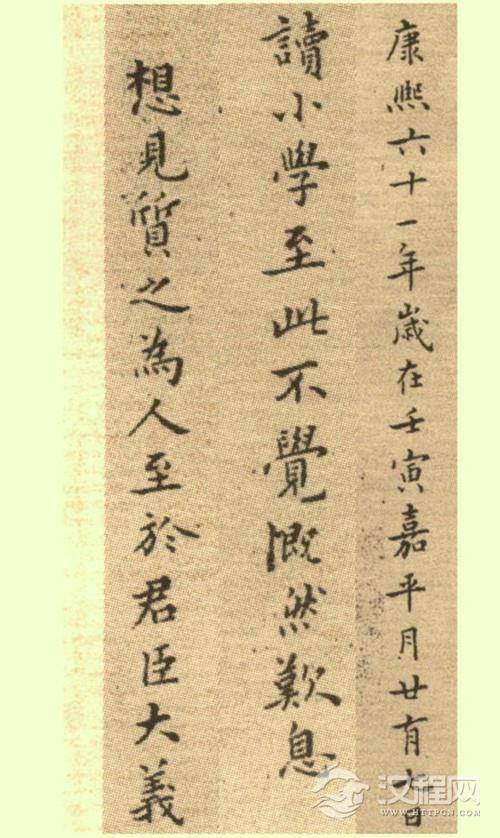 康熙六十一年歲在壬寅嘉平月廿有九日
讀小學至此不覺慨然歎息
想見質之為人至於君臣大義
汉程网
HTTPCN.COM